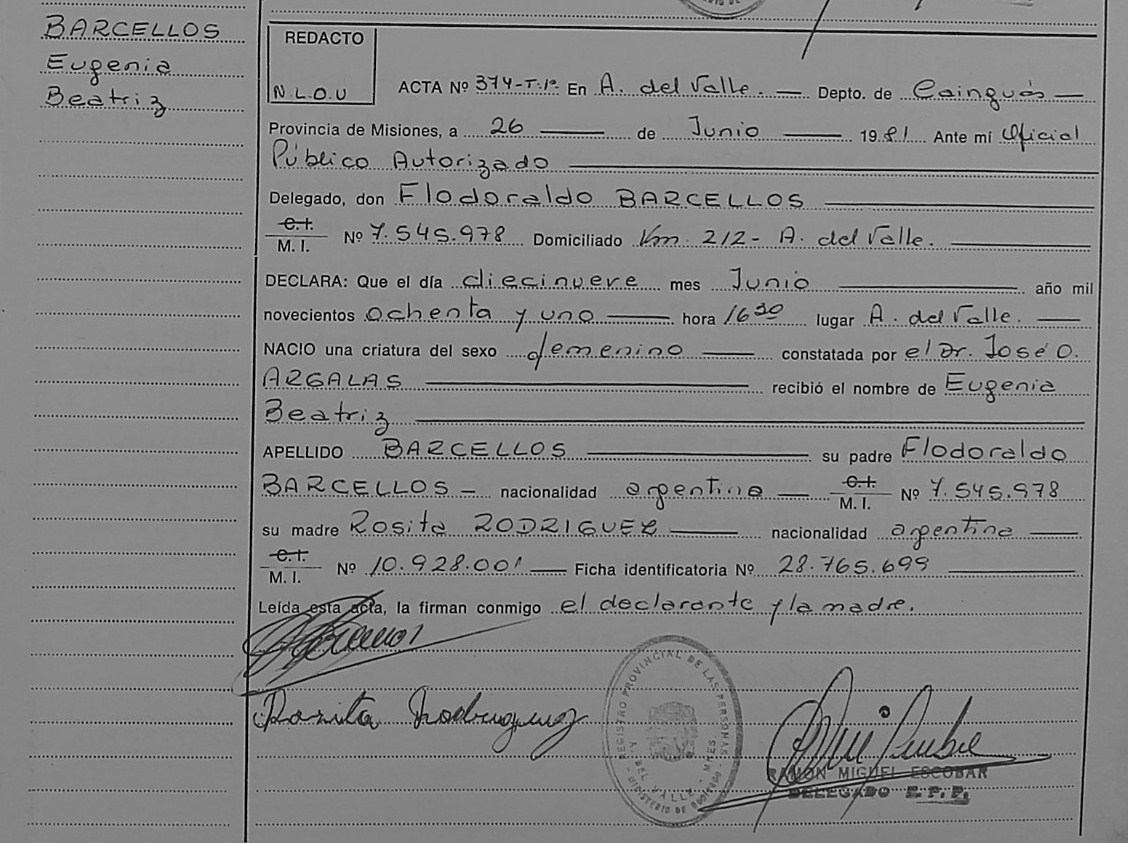 BARCELLOS
Eugenia
Beatriz
REDACTO
N.L.O.U
ACTA Nº 374-T.1º. En A. del Valle. — Depto. de Cainguás —
Provincia de Misiones, a 26 — de Junio — 1981 Ante mí Oficial
Público Autorizado —
Delegado, don Flodoraldo BARCELLOS —
C.I. / M. I. Nº 7.545.978 Domiciliado Km 212- A. del Valle. —
DECLARA: Que el día diecinueve mes Junio — año mil
novecientos ochenta y uno — hora 16 30 lugar A. del Valle. —
NACIO una criatura del sexo femenino — constatada por el Dr. José O.
ARGALAS — recibió el nombre de Eugenia
Beatriz —
APELLIDO BARCELLOS — su padre Flodoraldo
BARCELLOS — nacionalidad argentina — C.I. / M. I. Nº 7.545.978
su madre Rosita RODRIGUEZ — nacionalidad argentina —
C.I. / M. I. Nº 10.928.001 — Ficha identificatoria Nº 28.765.699 —
Leída esta acta, la firman conmigo el declarante y la madre.
Rosita Rodriguez
REGISTRO PROVINCIAL DE LAS PERSONAS
A. DEL VALLE - MNES.
MINISTERIO DE GOBIERNO
RAMON MIGUEL ESCOBAR
DELEGADO R. P. P.